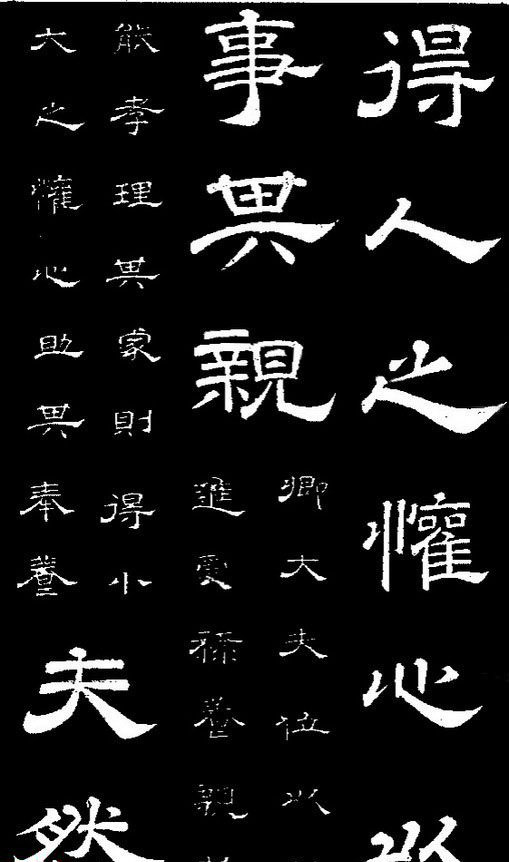 得人之懽心以
事其親
卿大夫位以
進受祿養親
能孝理其家則得小
大之懽心助其奉養
夫然